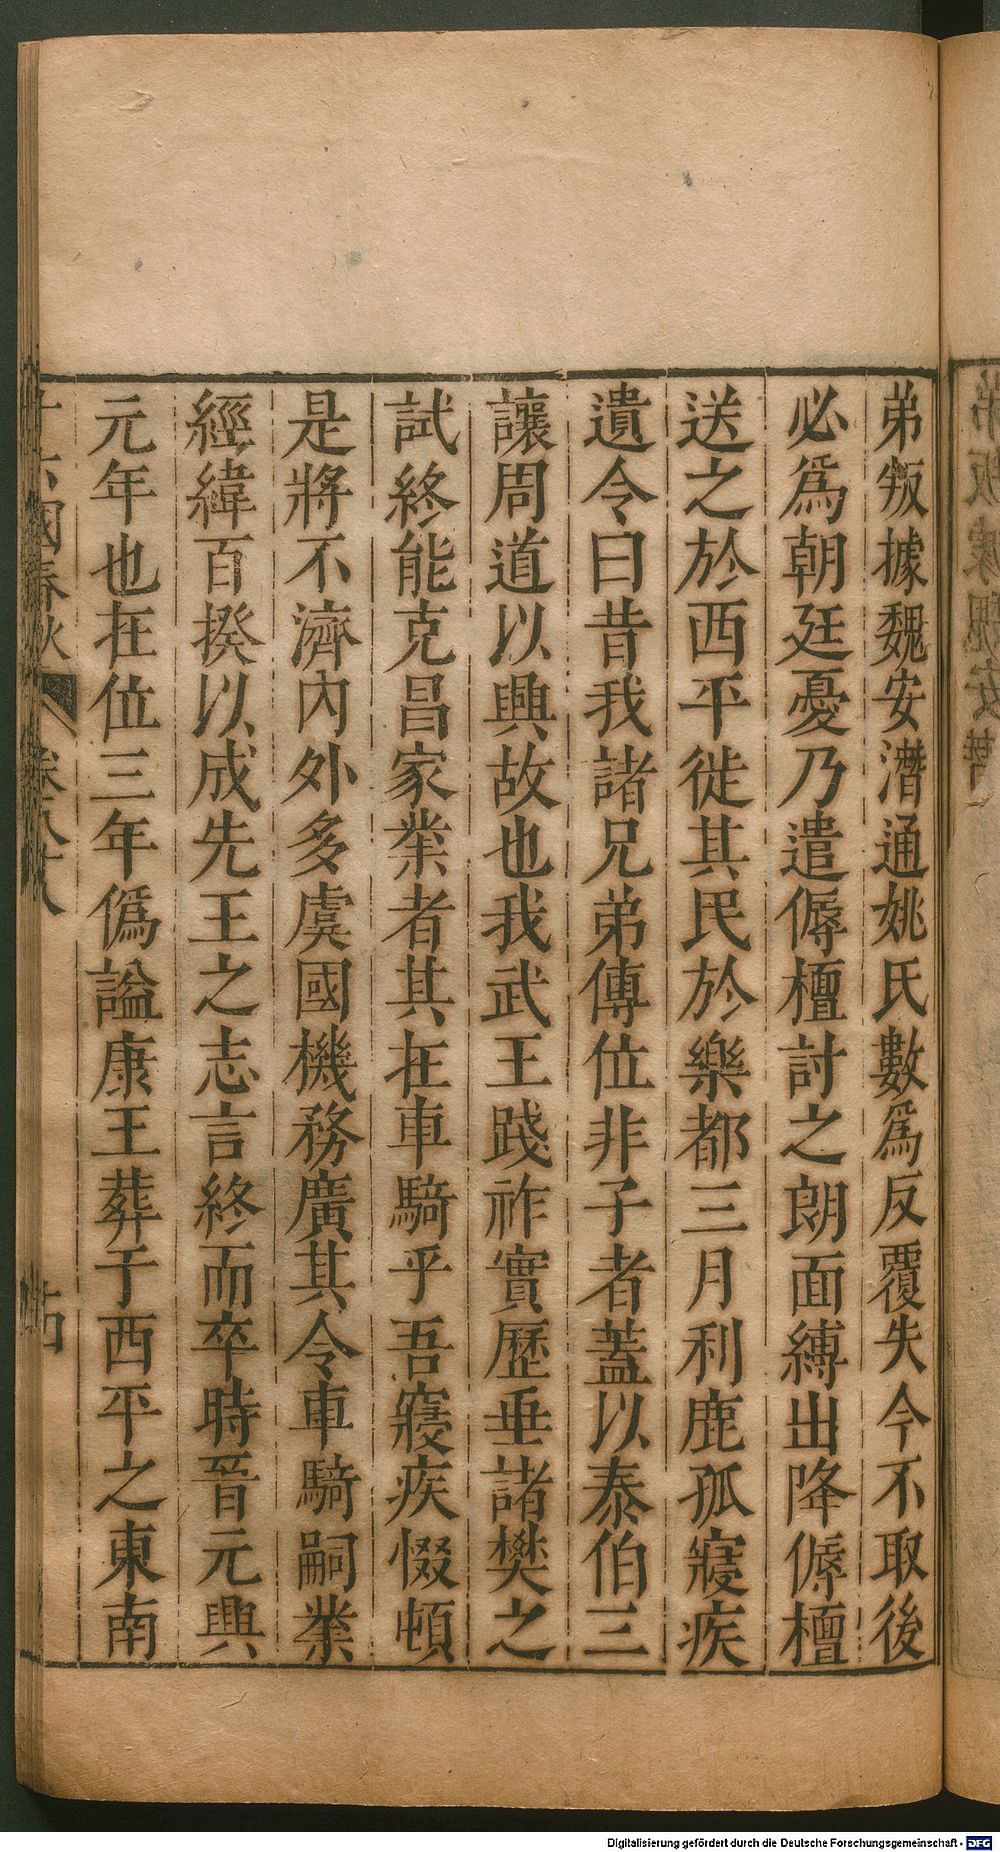 弟叛據魏安潛通姚氏數爲反覆失今不取後
必爲朝廷憂乃遣傉檀討之朗面縛出降傉檀
送之於西平徙其民於樂都三月利鹿孤寢疾
遺令曰昔我諸兄弟傳位非子者蓋以泰伯三
讓周道以興故也我武王踐祚實歷垂諸樊之
試終能克昌家業者其在車騎乎吾寢疾惙頓
是將不濟內外多虞國機務廣其令車騎嗣業
經緯百揆以成先王之志言終而卒時晉元興
元年也在位三年僞謚康王葬于西平之東南
十六國春秋 卷八十八 十四
Digitalisierung gefördert durch die Deutsche Forschungsgemeinschaft - DFG